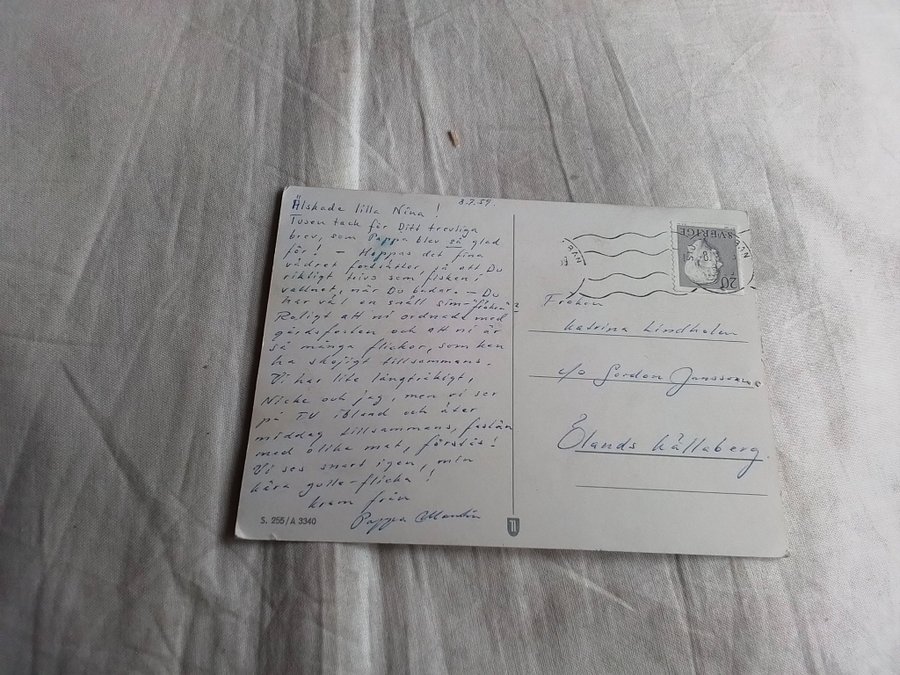 Älskade lilla Nina! 8.7.59.
Tusen tack för Ditt trevliga
brev, som Pappa blev så glad
för! - Hoppas det fina
vädret fortsätter, så att Du
riktigt trivs som fisken i
vattnet, när Du badar. - Du
har väl en snäll sim-"fröken"?
Roligt att ni ordnade med
gårdsfesten och att ni är
så många flickor, som kan
ha skojigt tillsammans.
Vi har lite långtråkigt,
Nicke och jag, men vi ser
på TV ibland och äter
middag tillsammans, fastän
med olika mat, förstås!
Vi ses snart igen, min
kära gulle-flicka!
kram från
Pappa Martin
S. 255/A 3340
SVERIGE
20
Fröken
Katrina Lindholm
c/o Gordon Janssons
Ölands Källaberg.